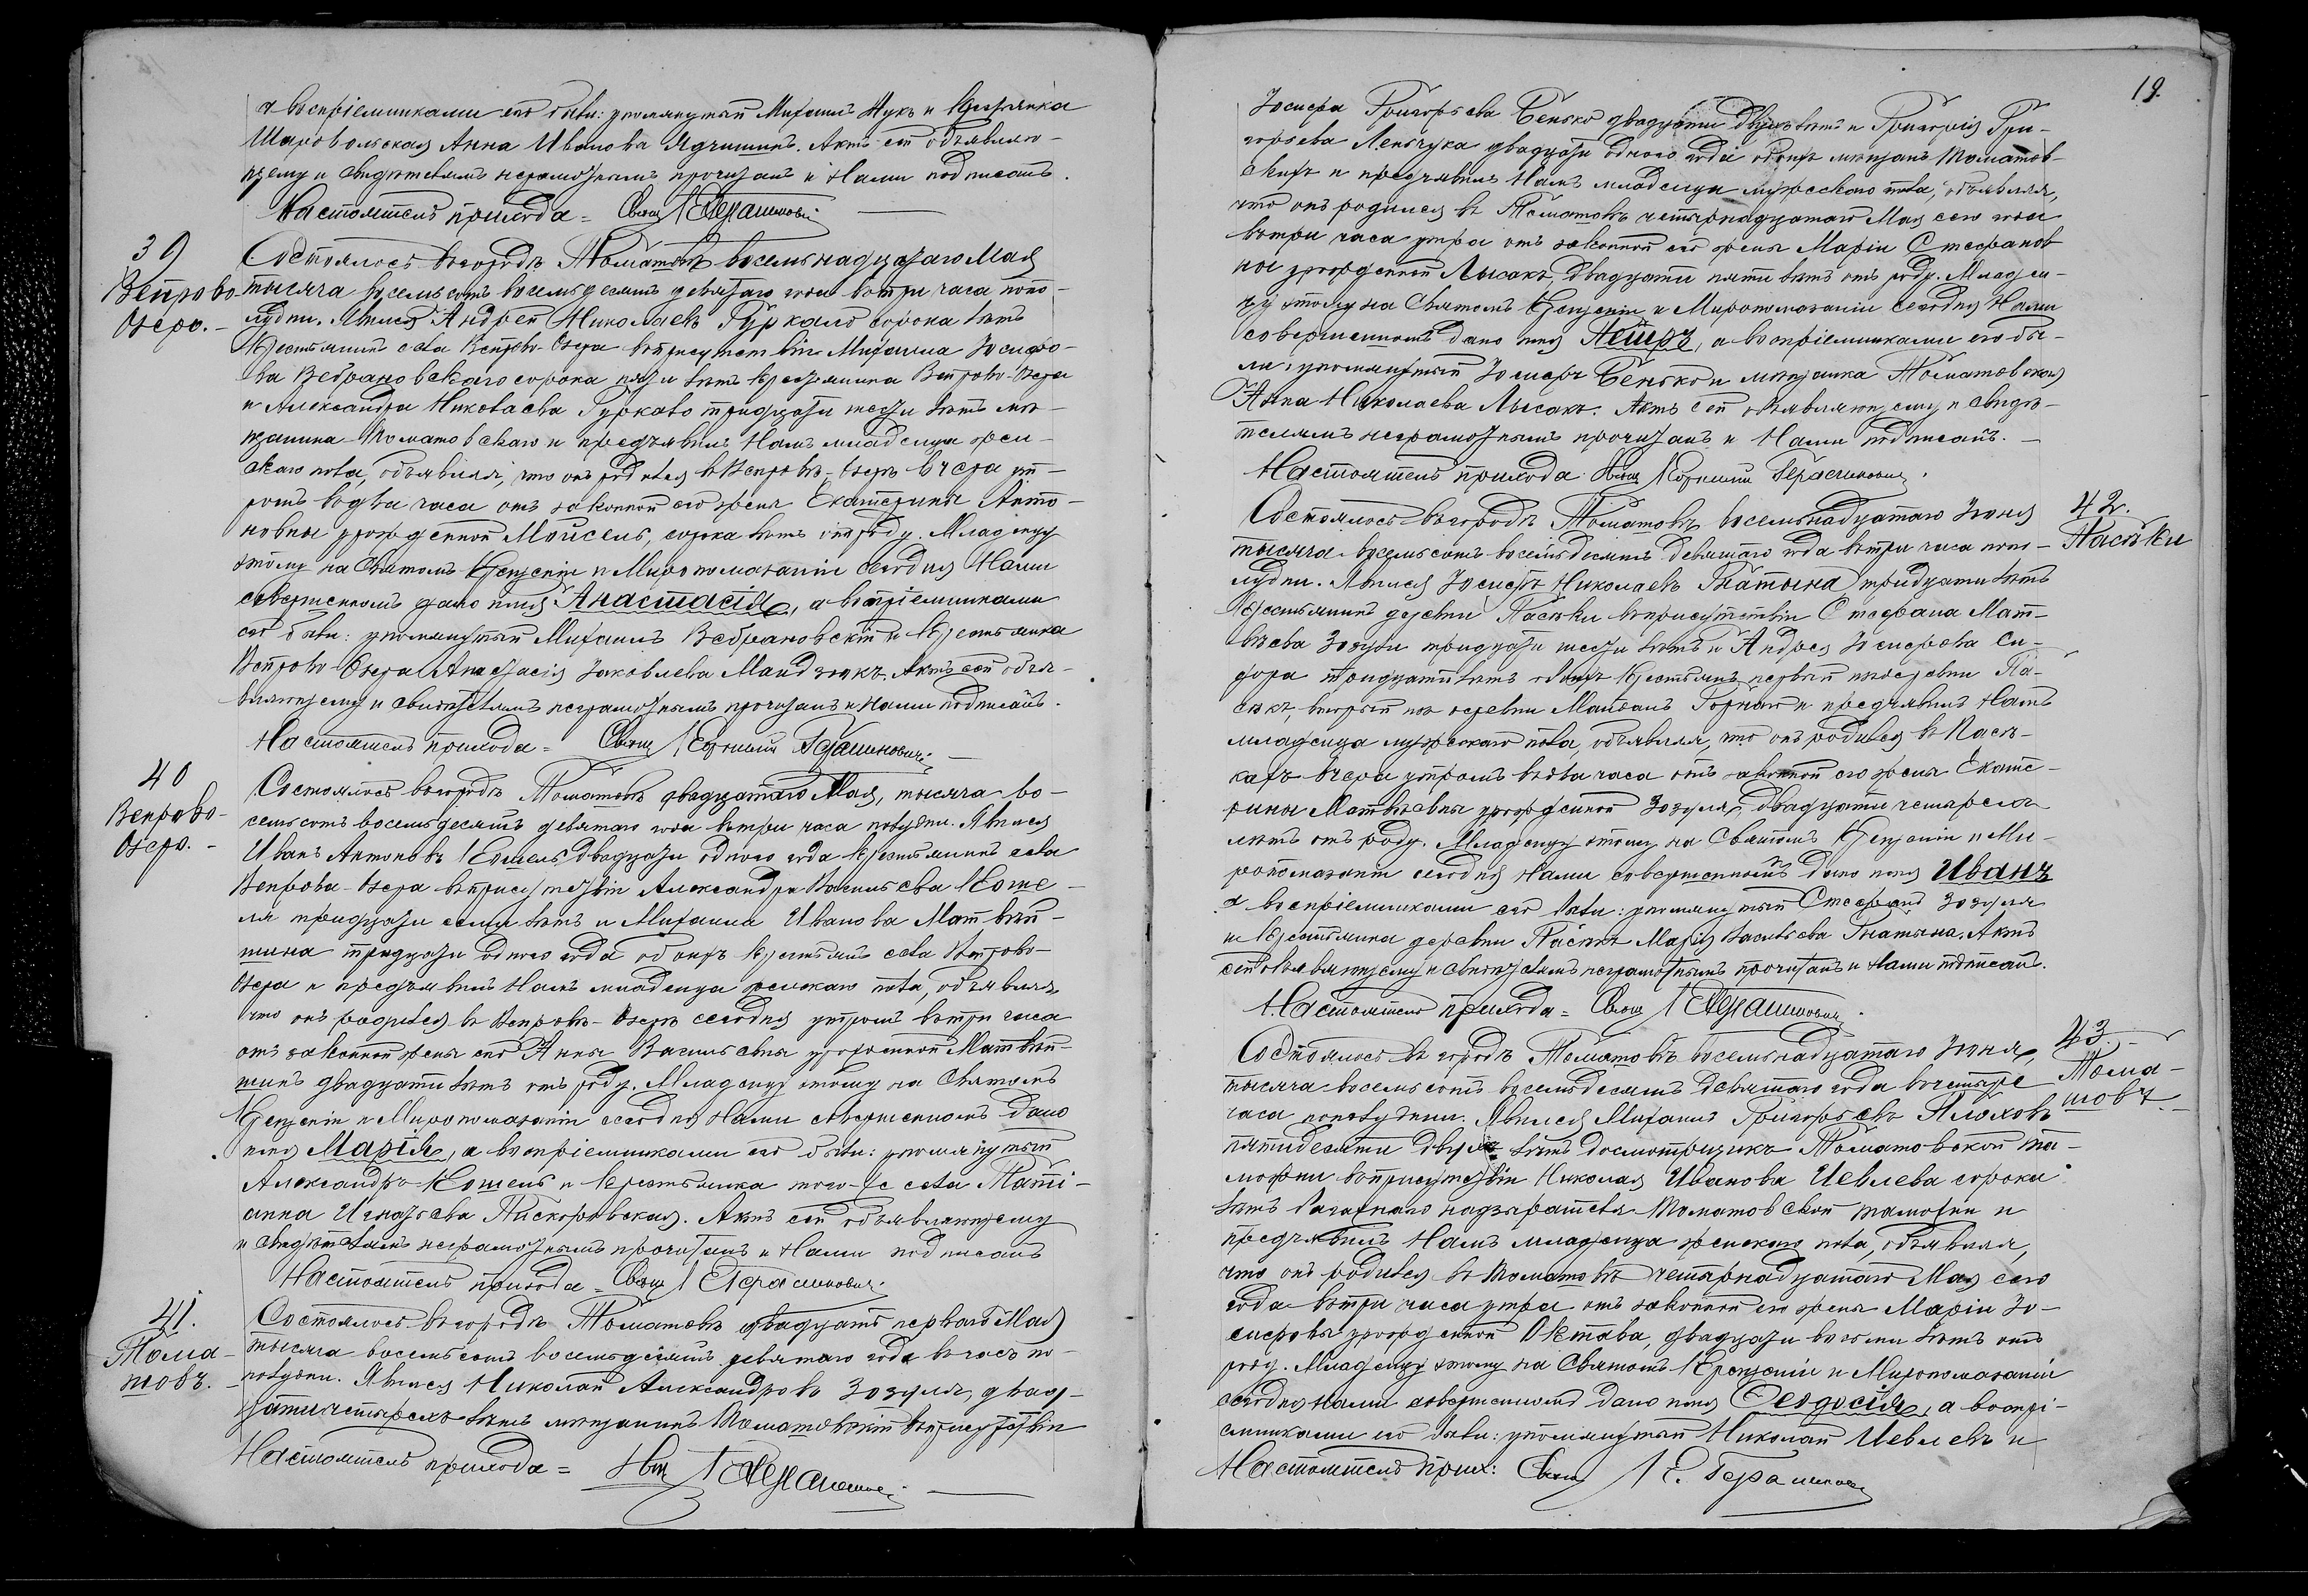 а воспріемниками его были: упомянутый Михаилъ Жукъ и Крестьянка
Шаровольская Анна Иванова Ядчишинъ. Актъ сей объявляю-
щему и свидѣтелямъ неграмотнымъ прочитанъ и Нами подписанъ.
Настоятель прихода = Свящ К Герасимовичъ
39
Вепрово
Озеро. -
Состоялось въ городѣ Томашовѣ восемьнадцатаго Мая
тысяча восемьсотъ восемьдесятъ девятаго года въ три часа попо-
лудни. Явился Андрей Николаевъ Гуркало сорока лѣтъ
Крестьянинъ села Вепрово-Озера въ присутствіи Михаила Іосифо-
ва Вебрановскаго сорока пяти лѣтъ крестьянина Вепрово-Озера
и Александра Николаева Гуркало тридцати шести лѣтъ мѣ-
щанина Томашовскаго и предъявилъ Намъ младенца жен-
скаго пола, объявляя, что онъ родился в Вепровѣ-Озерѣ вчера ут-
ромъ въ два часа отъ законной его жены Екатерины Анто-
новны урожденной Мойсеюь, сорока лѣтъ отъ роду. Младенцу
этому на Святомъ Крещеніи и Миропомазаніи сегодня Нами
совершенномъ дано имя Анастасія, а воспріемниками
его были: упомянутый Михаилъ Вебрановскій и Крестьянка
Вепрово-Озера Анастасія Яковлева Мандзюкъ. Актъ сей объя-
вляющему и свидѣтелямъ неграмотнымъ прочитанъ и Нами подписанъ.
Настоятель прихода = Свящ Корнилій Герасимовичъ
40
Вепрово-
Озеро. -
Состоялось въ городѣ Томашовѣ двадцатаго Мая, тысяча во-
семьсотъ восемьдесятъ девятаго года въ три часа полудни. Явился
Иванъ Антоновъ Кошель двадцати одного года Крестьянинъ села
Вепрова-Озера въ присутствіи Александра Васильева Коше-
ля тридцати семи лѣтъ и Михаила Иванова Матвѣй-
шина тридцати одного года обоихъ Крестьянъ села Вепрово-
Озера и предъявилъ Намъ младенца женскаго пола, объявляя,
что онъ родился в Вепровѣ-Озерѣ сегодня утромъ въ три часа
отъ законной жены его Анны Васильевны урожденной Матвѣй-
шинъ двадцати лѣтъ отъ роду. Младенцу этому на Святомъ
Крещеніи и Миропомазаніи сегодня Нами совершенномъ дано
имя Марія, а воспріемниками его были: упомянутый
Александръ Кошель и Крестьянка того-же села Таті-
анна Игнатьева Пискоровская. Актъ сей объявляющему
и свидѣтелямъ неграмотнымъ прочитанъ и Нами подписанъ
Настоятель прихода = Свящ К Герасимовичъ.
41.
Тома-
шовъ. -
Состоялось въ городѣ Томашовѣ двадцать перваго Мая
тысяча восемьсотъ восемьдесятъ девятаго года въ часъ по-
полудни. Явился Николай Александровъ Зозуля, двад-
цати четырехъ лѣтъ мѣщанинъ Томашовскій въ присутствіи
Настоятель прихода = Свящ К Герасимовичъ
19.
Іосифа Григорьева Бенько двадцати двухъ лѣтъ и Григорія Гри-
горьева Ленчука двадцати одного года обоихъ мѣщанъ Томашов-
скихъ и предъявилъ Намъ младенца мужескаго пола, объявляя,
что онъ родился въ Томашовѣ четырнадцатаго Мая сего года
въ три часа утра отъ законной его жены Маріи Стефанов-
ны урожденной Лысакъ, двадцати пяти лѣтъ отъ роду. Младен-
цу этому на Святомъ Крещеніи и Миропомазаніи сегодня Нами
совершенномъ дано имя Петръ, а воспріемниками его бы-
ли: упомянутый Іосифъ Бенько и мѣщанка Томашовская
Анна Николаева Лысакъ. Актъ сей объявляющему и свидѣ-
телямъ неграмотнымъ прочитанъ и Нами подписанъ. -
Настоятель прихода: Свящ Корнилій Герасимовичъ.
42.
Пасѣки
Состоялось въ городѣ Томашовѣ восемьнадцатаго Іюня
тысяча восемьсотъ восемьдесятъ девятаго года въ три часа попо-
лудни. Явился Іосифъ Николаевъ Гнатына тридцати лѣтъ
Крестьянинъ деревни Пасѣки въ присутствіи Стефана Мат-
вѣева Зозули тридцати шести лѣтъ и Андрея Іосифова Си-
дора тридцати лѣтъ обоихъ Крестьянъ первый изъ деревни Па-
сѣкъ, вторый изъ деревни Майданъ Горный и предъявилъ Намъ
младенца мужескаго пола, объявляя, что онъ родился въ Пасѣ-
кахъ вчера утромъ въ два часа отъ законной его жены Екате-
рины Матвѣевны урожденной Зозуля, двадцати четырехъ
лѣтъ отъ роду. Младенцу этому на Святомъ Крещеніи и Ми-
ропомазаніи сегодня Нами совершенномъ дано имя Иванъ
а воспріемниками его были: упомянутый Стефанъ Зозуля
и Крестьянка деревни Пасѣкъ Марія Васильева Гнатына. Актъ
сей объявляющему и свидѣтелямъ неграмотнымъ прочитанъ и Нами подписанъ.
Настоятель прихода = Свящ К Герасимовичъ.
43. -
Тома-
шовъ. -
Состоялось въ городѣ Томашовѣ восемьнадцатаго Іюня,
тысяча восемьсотъ восемьдесятъ девятаго года въ четыре
часа пополудни. Явился Михаилъ Григорьевъ Плоховъ
пятидесяти двухъ лѣтъ досмотрщикъ Томашовской та-
можни въ присутствіи Николая Иванова Иевлева сорока
лѣтъ пакгаузнаго надзирателя Томашовской таможни и
предъявилъ Намъ младенца женскаго пола, объявляя,
что онъ родился въ Томашовѣ четырнадцатаго Мая сего
года въ три часа утра отъ законной его жены Маріи Іо-
сифовы урожденной Октава, двадцати восьми лѣтъ отъ
роду. Младенцу этому на Святомъ Крещеніи и Миропомазаніи
сегодня Нами совершенномъ дано имя Ѳеодосія, а воспрі-
емниками его были: упомянутый Николай Иевлевъ и
Настоятель прих: Свящ К. Герасимовичъ